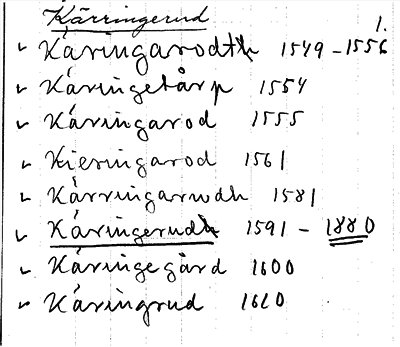 Kärringerud
1.
Käringarodth 1549-1556
Käringetårp 1554
Käringarod 1555
Kieringarod 1561
Kärringarudh 1581
Käringerudh 1591 - 1880
Käringegård 1600
Käringrud 1610